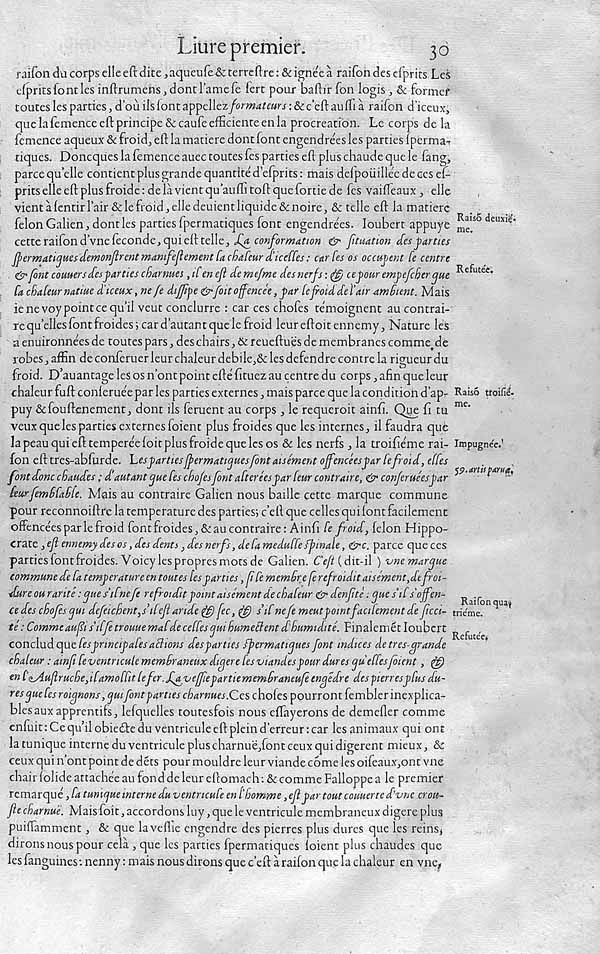 Liure premier. 30
raiſon du corps elle eſt dite, aqueuſe & terreſtre: & ignée à raiſon des eſprits Les
eſprits ſont les inſtrumens, dont l'ame ſe ſert pour baſtir ſon logis, & former
toutes les parties, d'où ils ſont appellez formateurs: & c'eſt auſſi à raiſon d'iceux,
que la ſemence eſt principe & cauſe efficiente en la procreation. Le corps de la
ſemence aqueux & froid, eſt la matiere dont ſont engendrées les parties ſperma-
tiques. Doncques la ſemence auec toutes ſes parties eſt plus chaude que le ſang,
parce qu'elle contient plus grande quantité d'eſprits: mais deſpoüillée de ces eſ-
prits elle eſt plus froide: de là vient qu'auſſi toſt que ſortie de ſes vaiſſeaux, elle
vient à ſentir l'air & le froid, elle deuient liquide & noire, & telle eſt la matiere
ſelon Galien, dont les parties ſpermatiques ſont engendrées. Ioubert appuye
Raisõ deuxié-
me.
cette raiſon d'vne ſeconde, qui eſt telle, La conformation & ſituation des parties
ſpermatiques demonſtrent manifeſtement la chaleur d'icelles: car les os occupent le centre
& ſont couuers des parties charnues, il en eſt de meſme des nerfs: & ce pour empeſcher que
Refutée.
la chaleur natiue d'iceux, ne ſe diſſipe & ſoit offencée, par le froid de l'air ambient. Mais
ie ne voy point ce qu'il veut conclurre: car ces choſes témoignent au contrai-
re qu'elles ſont froides; car d'autant que le froid leur eſtoit ennemy, Nature les
a enuironnées de toutes pars, des chairs, & reueſtuës de membranes comme de
robes, affin de conſeruer leur chaleur debile, & les defendre contre la rigueur du
froid. D'auantage les os n'ont point eſté ſituez au centre du corps, afin que leur
chaleur fuſt conſeruée par les parties externes, mais parce que la condition d'ap-
Raisõ troiſié-
me.
puy & ſouſtenement, dont ils ſeruent au corps, le requeroit ainſi. Que ſi tu
veux que les parties externes ſoient plus froides que les internes, il faudra que
la peau qui eſt temperée ſoit plus froide que les os & les nerfs, la troiſiéme rai-
Impugnée.
ſon eſt tres-abſurde. Les parties ſpermatiques ſont aisément offencées par le froid, elles
59. artis paruæ.
ſont donc chaudes; d'autant que les choſes ſont alterées par leur contraire, & conſeruées par
leur ſemblable. Mais au contraire Galien nous baille cette marque commune
pour reconnoiſtre la temperature des parties; c'eſt que celles qui ſont facilement
offencées par le froid ſont froides, & au contraire: Ainſi le froid, ſelon Hippo-
crate, eſt ennemy des os, des dents, des nerfs, de la medulle ſpinale, &c. parce que ces
parties ſont froides. Voicy les propres mots de Galien. C'eſt (dit-il) vne marque
commune de la temperature en toutes les parties, ſi le membre ſe refroidit aisément, de froi-
dure ou rarité: que s'il ne ſe refroidit point aisément de chaleur & denſité: que s'il s'offen-
ce des choſes qui deſeichent, s'il eſt aride & ſec, & s'il ne ſe meut point facilement de ſicci-
Raiſon qua-
triéme.
té: Comme auſſi s'il ſe trouue mal de celles qui humectent d'humidité. Finalemẽt Ioubert
Refutée.
conclud que les principales actions des parties ſpermatiques ſont indices de tres-grande
chaleur: ainſi le ventricule membraneux digere les viandes pour dures qu'elles ſoient, &
en l'Auſtruche, il amollit le fer. La veſſie partie membraneuſe engẽdre des pierres plus du-
res que les roignons, qui ſont parties charnues. Ces choſes pourront ſembler inexplica-
bles aux apprentifs, leſquelles toutesfois nous eſſayerons de demeſler comme
enſuit: Ce qu'il obiecte du ventricule eſt plein d'erreur: car les animaux qui ont
la tunique interne du ventricule plus charnuë, ſont ceux qui digerent mieux, &
ceux qui n'ont point de dẽts pour mouldre leur viande cõme les oiſeaux, ont vne
chair ſolide attachée au fond de leur eſtomach: & comme Falloppe a le premier
remarqué, la tunique interne du ventricule en l'homme, eſt par tout couuerte d'vne crou-
ſte charnuë. Mais ſoit, accordons luy, que le ventricule membraneux digere plus
puiſſamment, & que la veſſie engendre des pierres plus dures que les reins,
dirons nous pour celà, que les parties ſpermatiques ſoient plus chaudes que
les ſanguines: nenny: mais nous dirons que c'eſt à raiſon que la chaleur en vne,